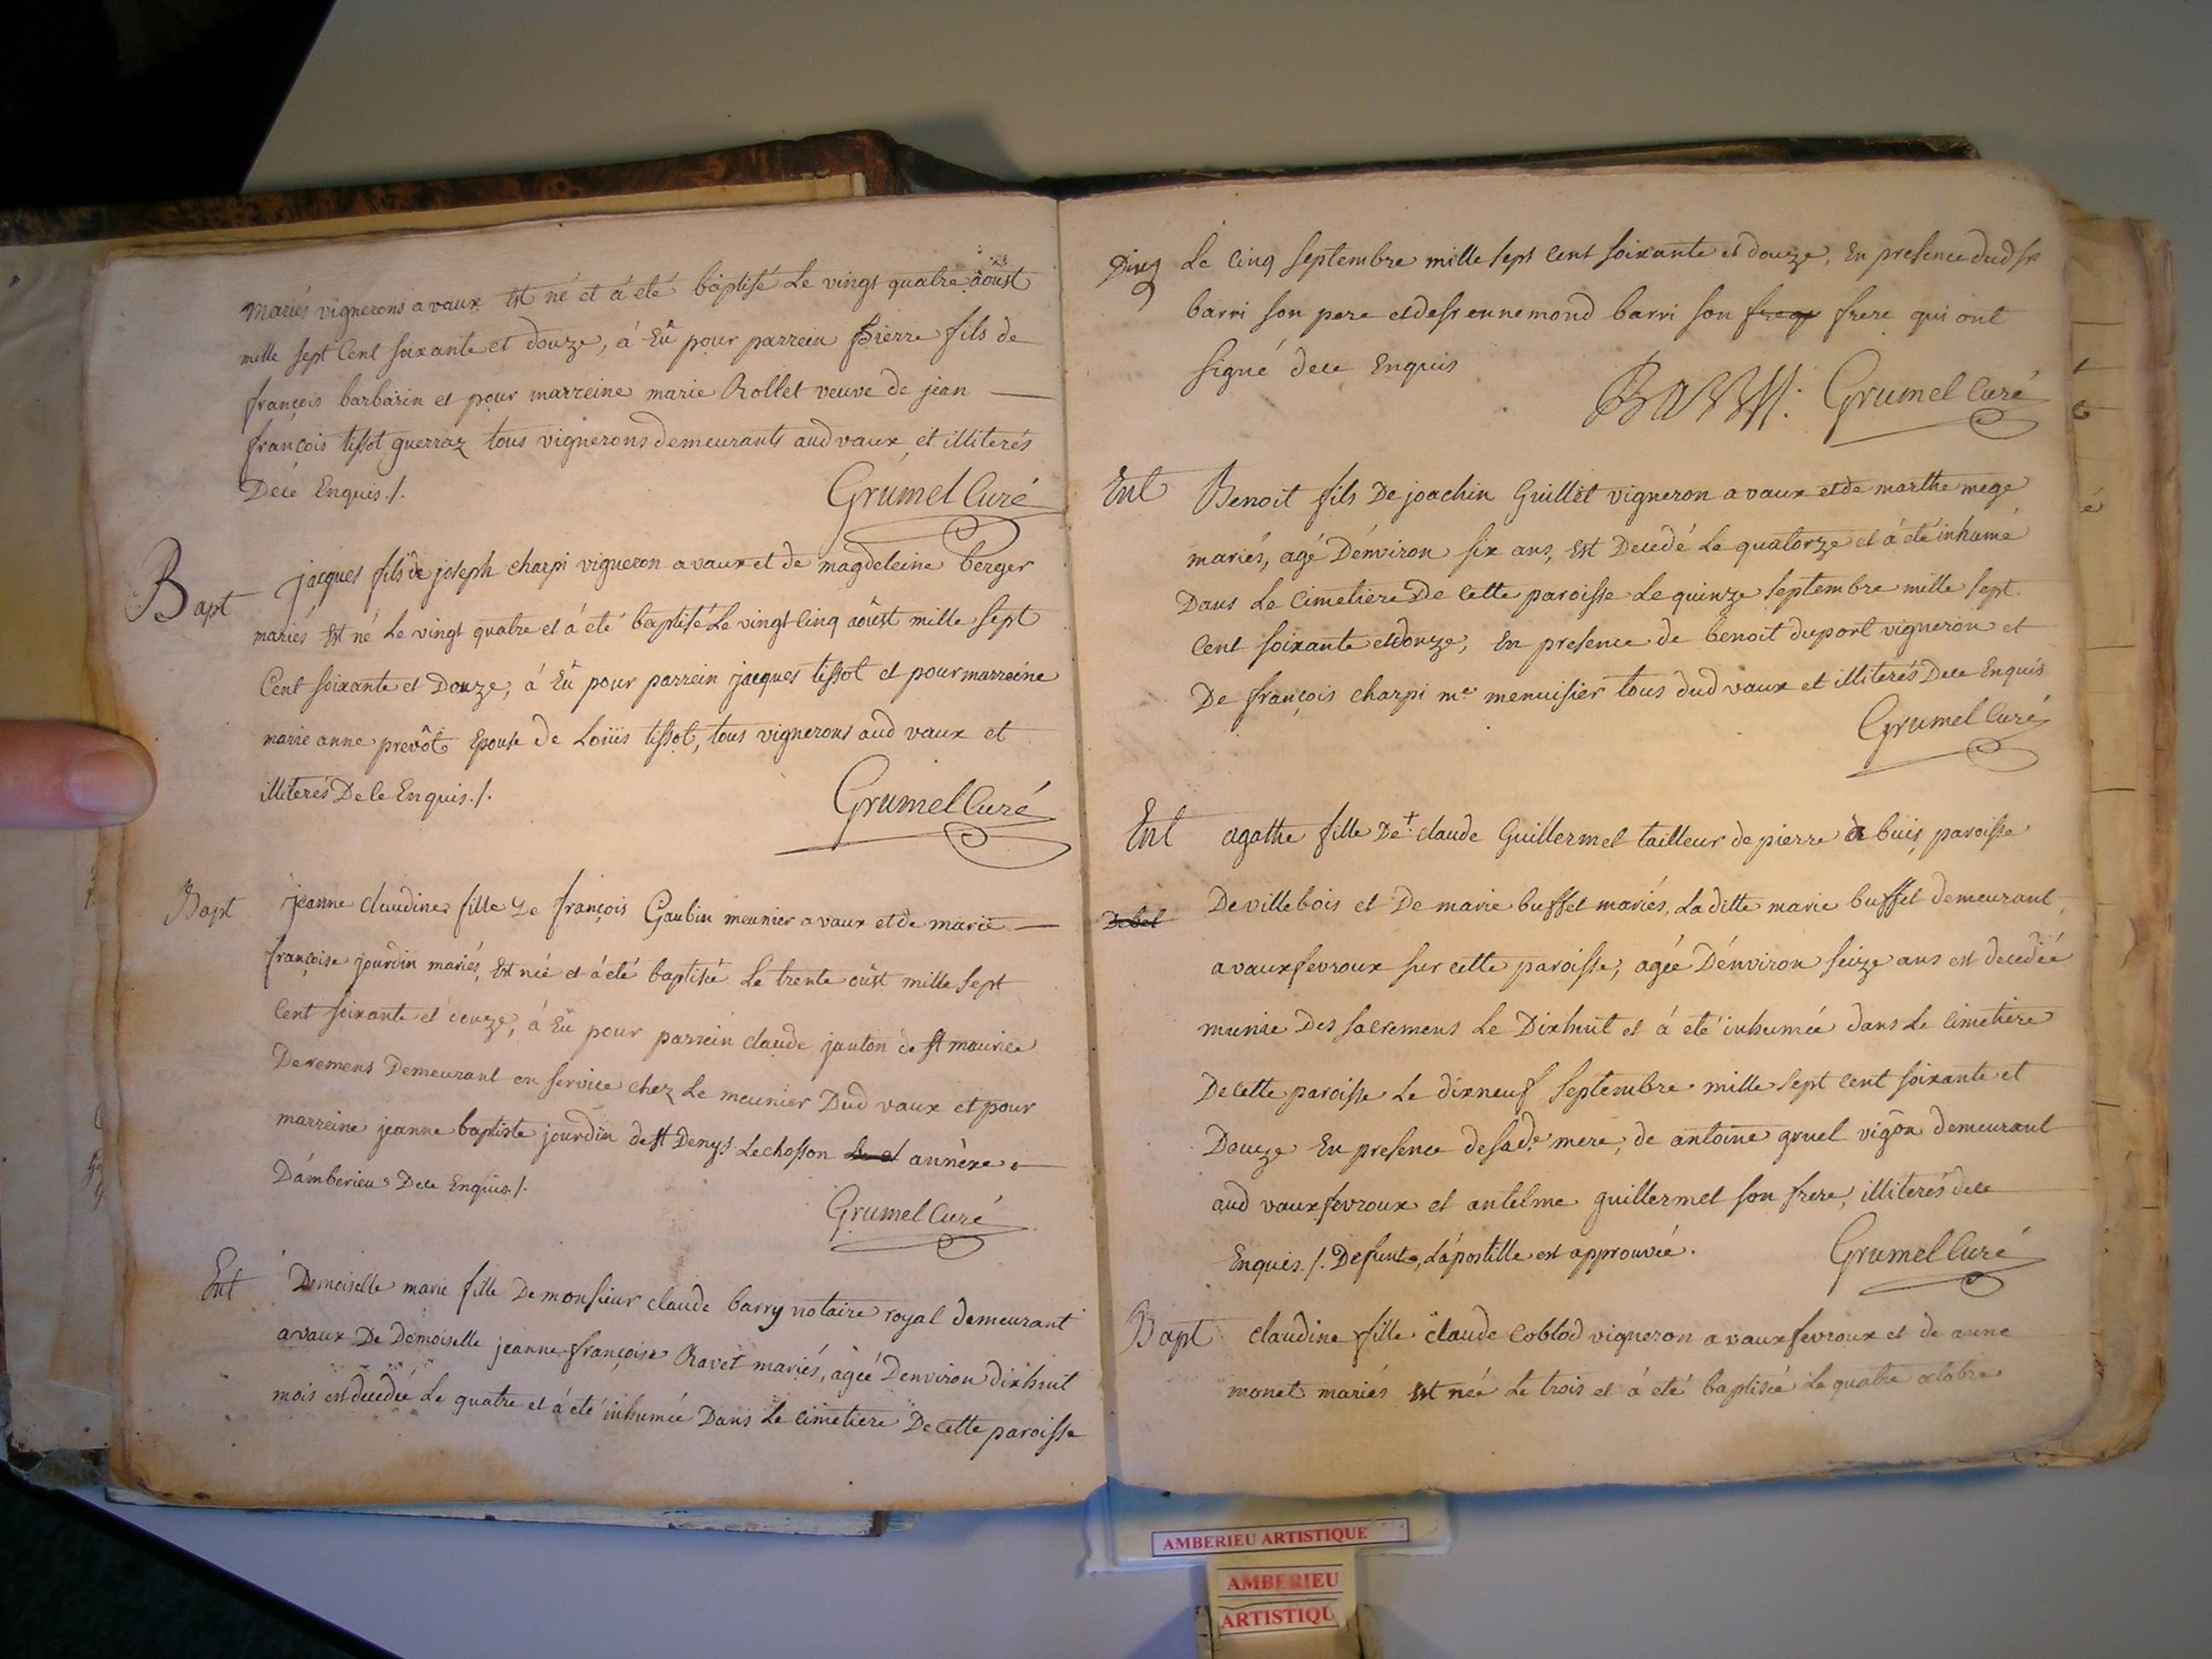 mariés vignerons a vaux est né et á eté bàptisé Le vingt quatre aoust
mille sept Cent soixante et douze, á Eû pour parrein pierre fils de
françois barbarin et pour marreine marie Rollet veuve de jean
françois tissot guerraz tous vignerons demeurants aud vaux et illiterés
Dece Enquis ./.
Grumel Curé
Bapt
jacques fils de joseph charpi vigneron a vaux et de magdeleine berger
mariés est né Le vingt quatre et á eté baptisé Le vingt Cinq aoûst mille sept
Cent soixante et Douze, á Eû pour parrein jacques tissot et pour marreine
marie anne prevôt Epouse de Loüis tissot, tous vignerons aud vaux et
illiterés De Ce Enquis ./.
Grumel Curé
Bapt
jeanne claudine fille De françois Gaubin meunier a vaux et de marie
françoise jourdin mariés, Est née et á eté baptisée Le trente oûst mille sept
Cent soixante et douze, á Eû pour parrein claude janton de st maurice
De remens Demeurant en service chez Le meunier Dud vaux et pour
marreine jeanne baptiste jourdin de st Denys Lechosson annèxe
D'amberieu Dece Enquis ./.
Grumel Curé
Ent
Demoiselle marie fille De monsieur claude barry notaire royal demeurant
a vaux De Demoiselle jeanne françoise Ravet mariés, agée D'environ dixhuit
mois est decedée Le quatre et á eté inhumée Dans Le cimetiere De cette paroisse
Le Cinq septembre mille sept Cent soixante et douze, En presence dud sr
barri son pere et de sr ennemond barri son frere qui ont
signé dece Enquis
Barri Grumel Curé
Ent
Benoit fils De joachin Guillet vigneron a vaux et de marthe mege
mariés, agé D'environ six ans, est Decedé Le quatorze et á eté inhumé
Dans Le Cimetiere De Cette paroisse Le quinze septembre mille sept
Cent soixante et douze, En presence de benoit duport vigneron et
De françois charpi me menuisier tous dud vaux et illiterés Dece Enquis
Grumel Curé
Ent
agathe fille De + claude Guillermet tailleur de pierre a buis paroisse
De villebois et De marie buffet mariés, La ditte marie buffet demeurant
a vauxfevroux sur cette paroisse, agée D'environ seize ans est decedée
munie Des sacremens Le Dixhuit et á eté inhumée dans Le Cimetiere
De Cette paroisse Le dixneuf septembre mille sept Cent soixante et
Douze En presence de sad. mere, de antoine gruel vigon demeurant
aud vauxfevroux et antelme guillermet son frere, illiterés dece
Enquis ./. Defunt, L'apostille est approuvée.
Grumel Curé
Bapt
claudine fille claude Coblod vigneron a vauxfevroux et de anne
monet mariés est née Le trois et á eté baptisée Le quatre octobre
AMBERIEU ARTISTIQUE
AMBERIEU
ARTISTIQU